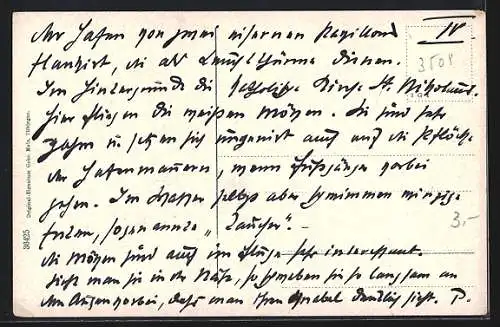 Der Hafen von zwei eisernen Pavillons
flankirt, die als Leuchttürme dienen.
Im Hintergrunde die katholische Kirche St. Nikolaus.
Hier fliegen die weißen Möven. Sie sind sehr
zahm u. setzen sich ungenirt auch auf die Pflöcke
der Hafenmauern, wenn Fußgänger vorbei
gehen. Im Wasser selbst aber schwimmen winzige
Enten, sogenannte „Taucher".
Die Möven sind auch im Fluge sehr interessant.
Sieht man sie in der Nähe, so schweben sie so langsam an
den Augen vorbei, daß man ihren Schnabel deutlich sieht. P.
IV
3508
3.-
39425
Gebr. Metz, Tübingen.